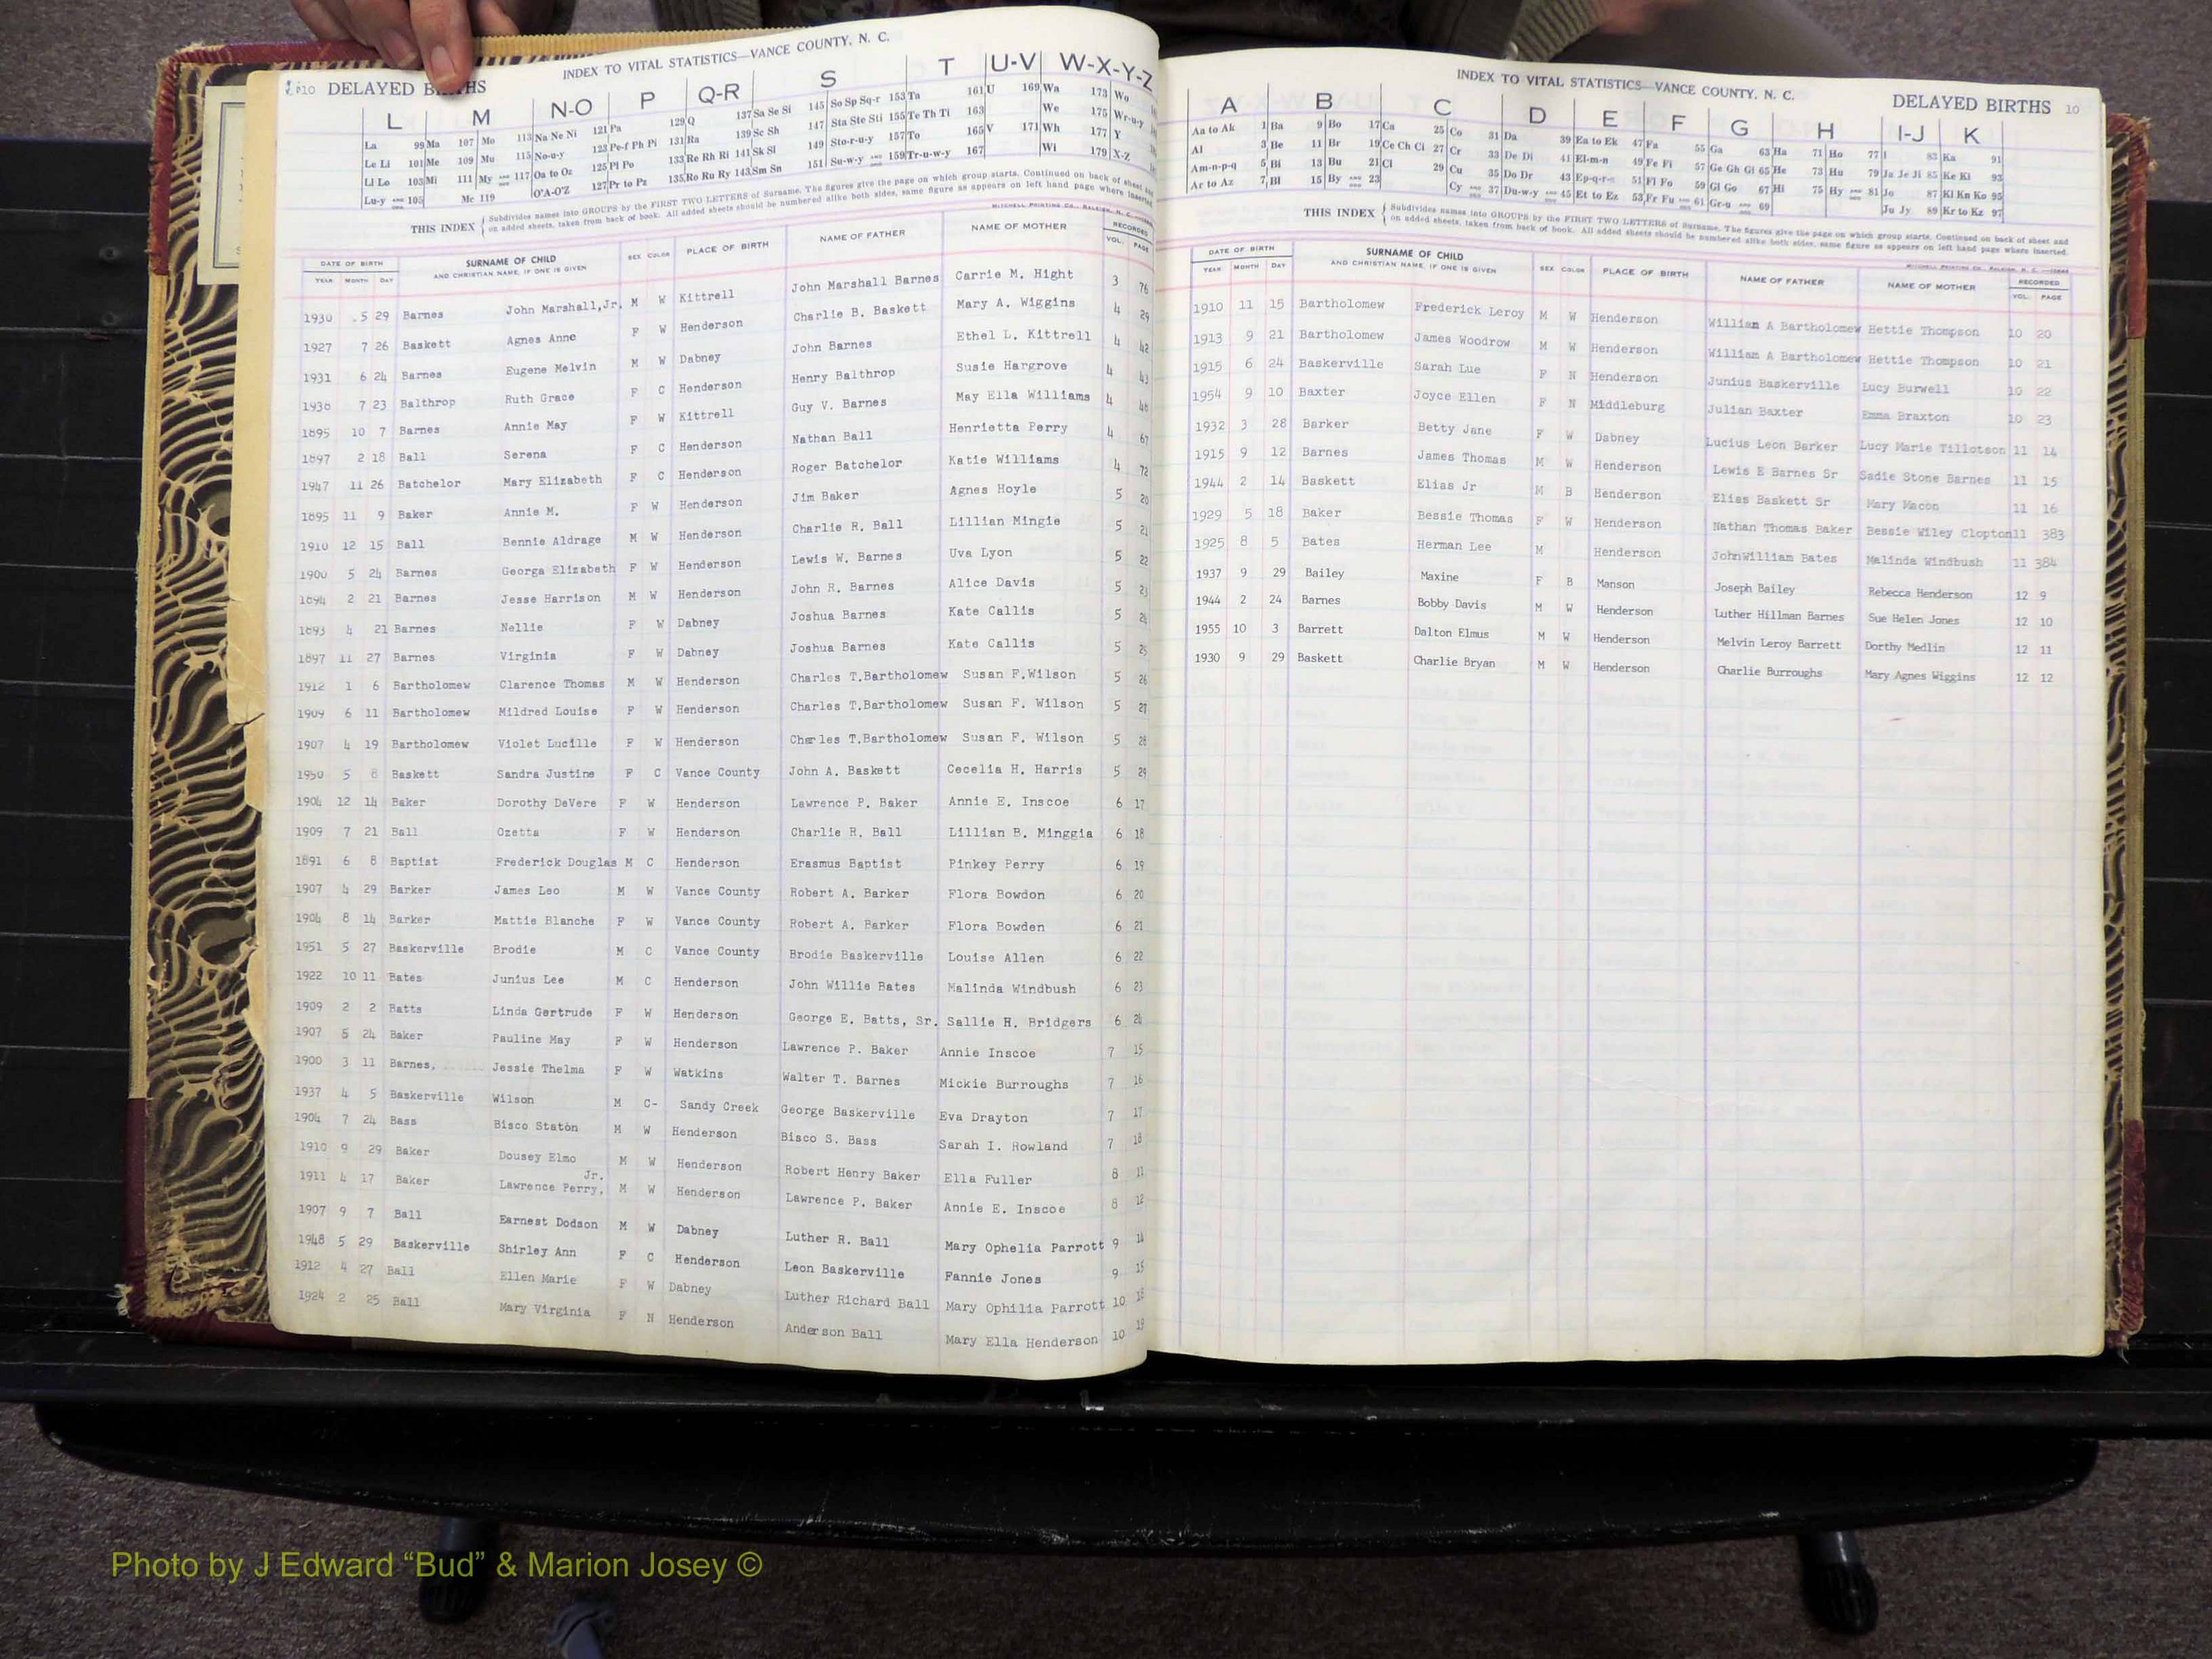 10 DELAYED B HS
INDEX TO VITAL STATISTICS—VANCE COUNTY, N. C.
L M N-O P Q-R S T U-V W-X-Y-Z
La 99 Ma 107 Mo 113 Na Ne Ni 121 Pa 129 Q 137 Sa Se Si 145 So Sp Sq-r 153 Ta 161 U 169 Wa 173 Wo
Le Li 101 Me 109 Mu 115 No-u-y 123 Pe-f Ph Pi 131 Ra 139 Sc Sh 147 Sta Ste Sti 155 Te Th Ti 163 We 175 Wr-u-y
Ll Lo 103 Mi 111 My AND ODD 117 Oa to Oz 125 Pl Po 133 Re Rh Ri 141 Sk Sl 149 Sto-r-u-y 157 To 165 V 171 Wh 177 Y
Lu-y AND ODD 105 Mc 119 O'A-O'Z 127 Pr to Pz 135 Ro Ru Ry 143 Sm Sn 151 Su-w-y AND ODD 159 Tr-u-w-y 167 Wi 179 X-Z
THIS INDEX { Subdivides names into GROUPS by the FIRST TWO LETTERS of Surname. The figures give the page on which group starts. Continued on back of sheet and
on added sheets, taken from back of book. All added sheets should be numbered alike both sides, same figure as appears on left hand page where inserted.
MITCHELL PRINTING CO., RALEIGH, N. C.
DATE OF BIRTH SURNAME OF CHILD SEX COLOR PLACE OF BIRTH NAME OF FATHER NAME OF MOTHER RECORDED
YEAR MONTH DAY AND CHRISTIAN NAME, IF ONE IS GIVEN VOL. PAGE
1930 5 29 Barnes John Marshall,Jr. M W Kittrell John Marshall Barnes Carrie M. Hight 3 76
1927 7 26 Baskett Agnes Anne F W Henderson Charlie B. Baskett Mary A. Wiggins 4 29
1931 6 24 Barnes Eugene Melvin M W Dabney John Barnes Ethel L. Kittrell 4 42
1938 7 23 Balthrop Ruth Grace F C Henderson Henry Balthrop Susie Hargrove 4 43
1895 10 7 Barnes Annie May F W Kittrell Guy V. Barnes May Ella Williams 4
1897 2 18 Ball Serena F C Henderson Nathan Ball Henrietta Perry 4 67
1947 11 26 Batchelor Mary Elizabeth F C Henderson Roger Batchelor Katie Williams 4 72
1895 11 9 Baker Annie M. F W Henderson Jim Baker Agnes Hoyle 5 20
1910 12 15 Ball Bennie Aldrage M W Henderson Charlie R. Ball Lillian Mingie 5 21
1900 5 24 Barnes Georga Elizabeth F W Henderson Lewis W. Barnes Uva Lyon 5 22
1894 2 21 Barnes Jesse Harrison M W Henderson John R. Barnes Alice Davis 5 23
1893 4 21 Barnes Nellie F W Dabney Joshua Barnes Kate Callis 5 24
1897 11 27 Barnes Virginia F W Dabney Joshua Barnes Kate Callis 5 25
1912 1 6 Bartholomew Clarence Thomas M W Henderson Charles T.Bartholomew Susan F.Wilson 5 26
1909 6 11 Bartholomew Mildred Louise F W Henderson Charles T.Bartholomew Susan F. Wilson 5 27
1907 4 19 Bartholomew Violet Lucille F W Henderson Charles T.Bartholomew Susan F. Wilson 5 28
1950 5 8 Baskett Sandra Justine F C Vance County John A. Baskett Cecelia H. Harris 5 29
1904 12 14 Baker Dorothy DeVere F W Henderson Lawrence P. Baker Annie E. Inscoe 6 17
1909 7 21 Ball Ozetta F W Henderson Charlie R. Ball Lillian B. Minggia 6 18
1891 6 8 Baptist Frederick Douglas M C Henderson Erasmus Baptist Pinkey Perry 6 19
1907 4 29 Barker James Leo M W Vance County Robert A. Barker Flora Bowdon 6 20
1904 8 14 Barker Mattie Blanche F W Vance County Robert A. Barker Flora Bowden 6 21
1951 5 27 Baskerville Brodie M C Vance County Brodie Baskerville Louise Allen 6 22
1922 10 11 Bates Junius Lee M C Henderson John Willie Bates Malinda Windbush 6 23
1909 2 2 Batts Linda Gertrude F W Henderson George E. Batts, Sr. Sallie H. Bridgers 6 24
1907 5 24 Baker Pauline May F W Henderson Lawrence P. Baker Annie Inscoe 7 15
1900 3 11 Barnes, Jessie Thelma F W Watkins Walter T. Barnes Mickie Burroughs 7 16
1937 4 5 Baskerville Wilson M C- Sandy Creek George Baskerville Eva Drayton 7 17
1904 7 24 Bass Bisco Staton M W Henderson Bisco S. Bass Sarah I. Rowland 7 18
1910 9 29 Baker Dousey Elmo M W Henderson Robert Henry Baker Ella Fuller 8 11
Jr.
1911 4 17 Baker Lawrence Perry, M W Henderson Lawrence P. Baker Annie E. Inscoe 8 12
1907 9 7 Ball Earnest Dodson M W Dabney Luther R. Ball Mary Ophelia Parrott 9 14
1948 5 29 Baskerville Shirley Ann F C Henderson Leon Baskerville Fannie Jones 9 15
1912 4 27 Ball Ellen Marie F W Dabney Luther Richard Ball Mary Ophilia Parrott 10 18
1924 2 25 Ball Mary Virginia F N Henderson Anderson Ball Mary Ella Henderson 10 19
INDEX TO VITAL STATISTICS—VANCE COUNTY, N. C.
DELAYED BIRTHS 10
A B C D E F G H I-J K
Aa to Ak 1 Ba 9 Bo 17 Ca 25 Co 31 Da 39 Ea to Ek 47 Fa 55 Ga 63 Ha 71 Ho 77 I 83 Ka 91
Al 3 Be 11 Br 19 Ce Ch Ci 27 Cr 33 De Di 41 El-m-n 49 Fe Fi 57 Ge Gh Gi 65 He 73 Hu 79 Ja Je Ji 85 Ke Ki 93
Am-n-p-q 5 Bi 13 Bu 21 Cl 29 Cu 35 Do Dr 43 Ep-q-r-s 51 Fl Fo 59 Gl Go 67 Hi 75 Hy AND ODD 81 Jo 87 Kl Kn Ko 95
Ar to Az 7 Bl 15 By AND ODD 23 Cy AND ODD 37 Du-w-y AND ODD 45 Et to Ez 53 Fr Fu AND ODD 61 Gr-u AND ODD 69 Ju Jy 89 Kr to Kz 97
THIS INDEX { Subdivides names into GROUPS by the FIRST TWO LETTERS of Surname. The figures give the page on which group starts. Continued on back of sheet and
on added sheets, taken from back of book. All added sheets should be numbered alike both sides, same figure as appears on left hand page where inserted.
MITCHELL PRINTING CO., RALEIGH, N. C.
DATE OF BIRTH SURNAME OF CHILD SEX COLOR PLACE OF BIRTH NAME OF FATHER NAME OF MOTHER RECORDED
YEAR MONTH DAY AND CHRISTIAN NAME, IF ONE IS GIVEN VOL. PAGE
1910 11 15 Bartholomew Frederick Leroy M W Henderson William A Bartholomew Hettie Thompson 10 20
1913 9 21 Bartholomew James Woodrow M W Henderson William A Bartholomew Hettie Thompson 10 21
1915 6 24 Baskerville Sarah Lue F N Henderson Junius Baskerville Lucy Burwell 10 22
1954 9 10 Baxter Joyce Ellen F N Middleburg Julian Baxter Emma Braxton 10 23
1932 3 28 Barker Betty Jane F W Dabney Lucius Leon Barker Lucy Marie Tillotson 11 14
1915 9 12 Barnes James Thomas M W Henderson Lewis E Barnes Sr Sadie Stone Barnes 11 15
1944 2 14 Baskett Elias Jr M B Henderson Elias Baskett Sr Mary Macon 11 16
1929 5 18 Baker Bessie Thomas F W Henderson Nathan Thomas Baker Bessie Wiley Clopton 11 383
1925 8 5 Bates Herman Lee M Henderson JohnWilliam Bates Malinda Windbush 11 384
1937 9 29 Bailey Maxine F B Manson Joseph Bailey Rebecca Henderson 12 9
1944 2 24 Barnes Bobby Davis M W Henderson Luther Hillman Barnes Sue Helen Jones 12 10
1955 10 3 Barrett Dalton Elmus M W Henderson Melvin Leroy Barrett Dorthy Medlin 12 11
1930 9 29 Baskett Charlie Bryan M W Henderson Charlie Burroughs Mary Agnes Wiggins 12 12
Photo by J Edward “Bud” & Marion Josey ©